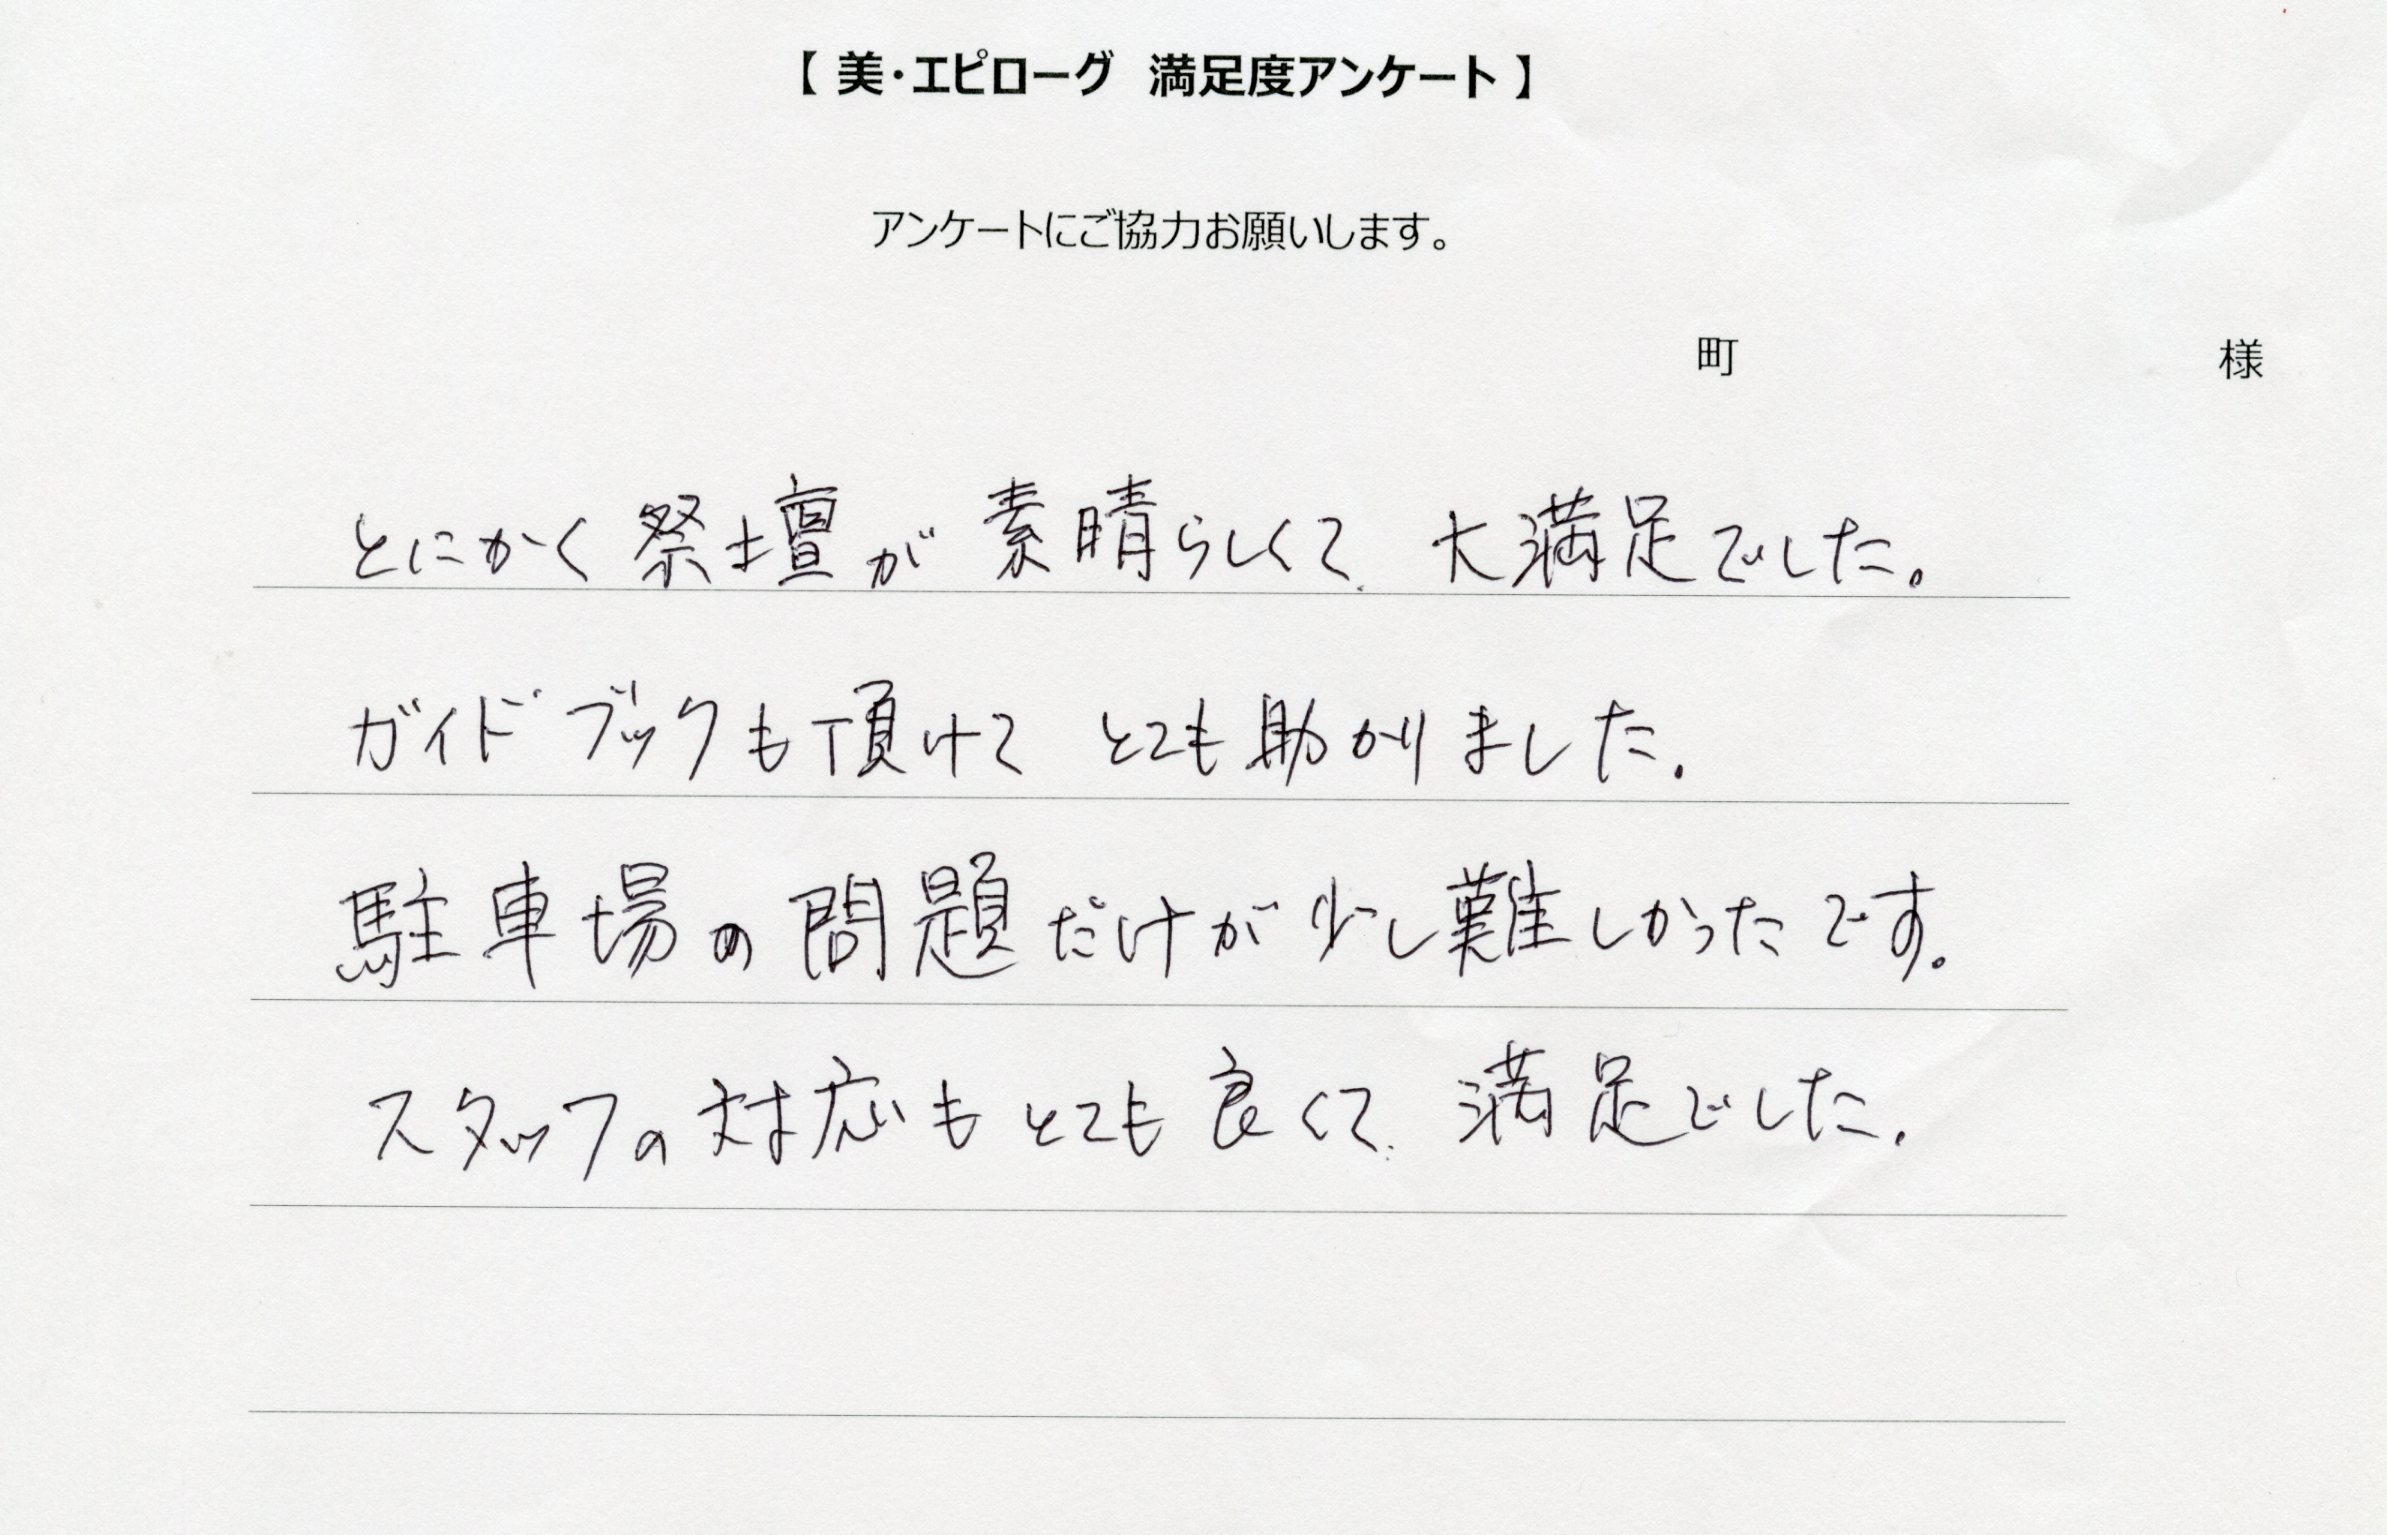 【 美・エピローグ 満足度アンケート 】
アンケートにご協力お願いします。
町 様
とにかく祭壇が素晴らしくて、大満足でした。
ガイドブックも頂けて とても助かりました。
駐車場の問題だけが少し難しかったです。
スタッフの対応もとても良くて、満足でした。